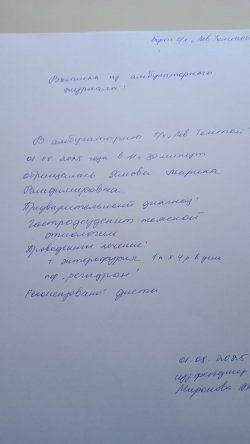 Борт т/х „Лев Толстой
Выписка из амбулаторного
журнала!
В амбулаторию т/х „Лев Толстой
01.08.2025 года в 11ч 30 минут
обращалась Марина
Предварительный диагноз!
Гастродуоденит
этиологии
Проведенное лечение!
т. энтерофурил 1т х 4 р в день
пор. „регидрон!
Рекомендовано диета
01.08.2025
Миронова